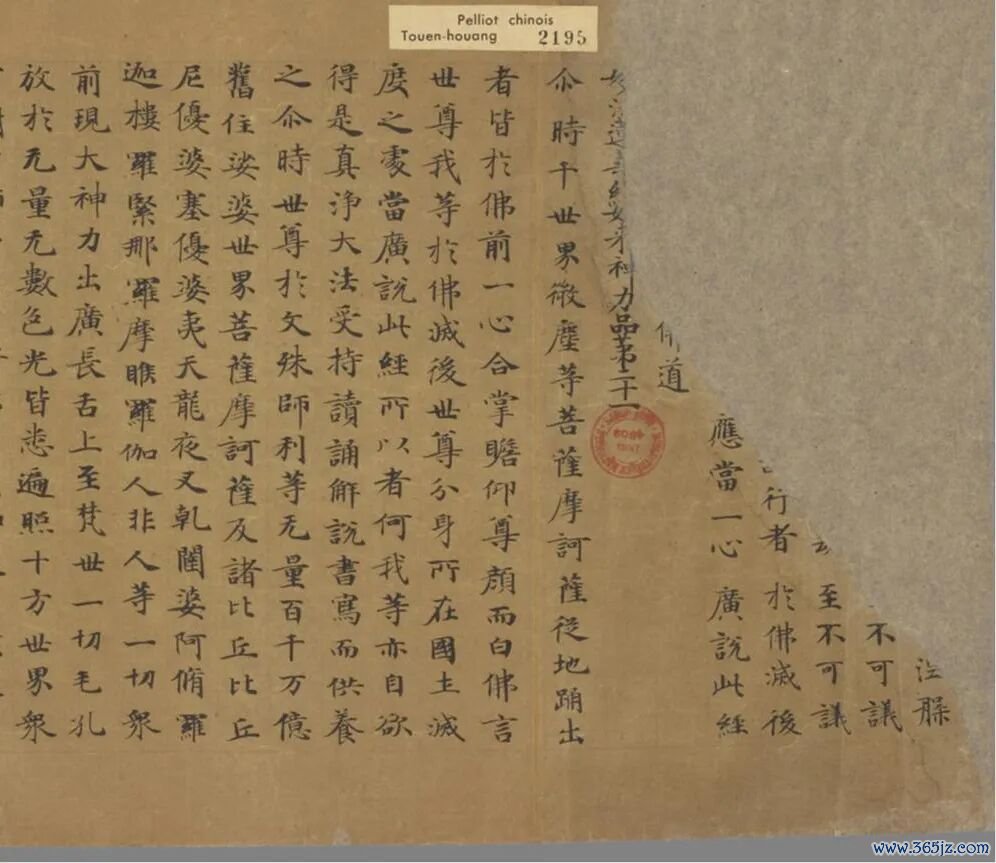 Pelliot chinois
Touen-houang 2195
不可議
至不可議
行者 於佛滅後
應當一心 廣說此經
佛道
神力品苐二十一
尒時千世界微塵等菩薩摩訶薩從地踊出
者皆於佛前一心合掌瞻仰尊顏而白佛言
世尊我等於佛滅後世尊分身所在國土滅
度之處當廣說此經所以者何我等亦自欲
得是真淨大法受持讀誦解說書寫而供養
之尒時世尊於文殊師利等无量百千万億
舊住娑婆世界菩薩摩訶薩及諸比丘比丘
尼優婆塞優婆夷天龍夜叉乹闥婆阿脩羅
迦樓羅緊那羅摩睺羅伽人非人等一切衆
前現大神力出廣長舌上至梵世一切毛孔
放於无量无數色光皆悉遍照十方世界衆
www.365jz.com